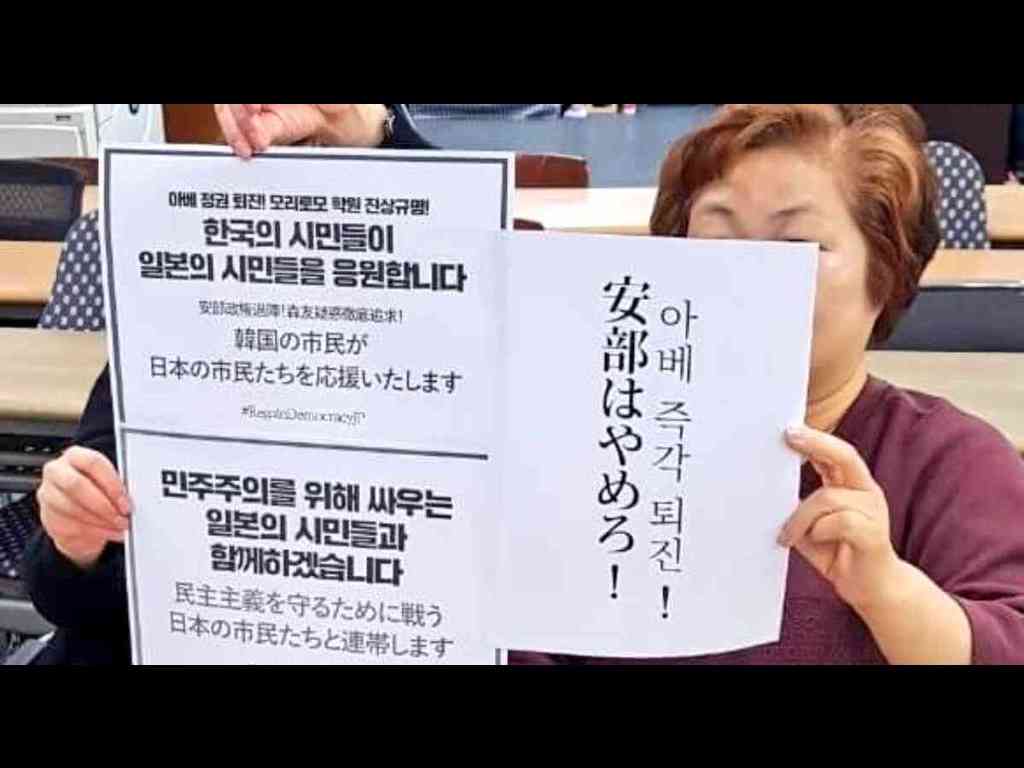 아베 정권 퇴진! 모리토모 학원 진상규명!
한국의 시민들이
일본의 시민들을 응원합니다
安部政権退陣!森友疑惑徹底追求!
韓国の市民が
日本の市民たちを応援いたします
#RegainDemocracyJP
민주주의를 위해 싸우는
일본의 시민들과
함께하겠습니다
民主主義を守るために戦う
日本の市民たちと連帯します
安部はやめろ!
아베 즉각 퇴진!